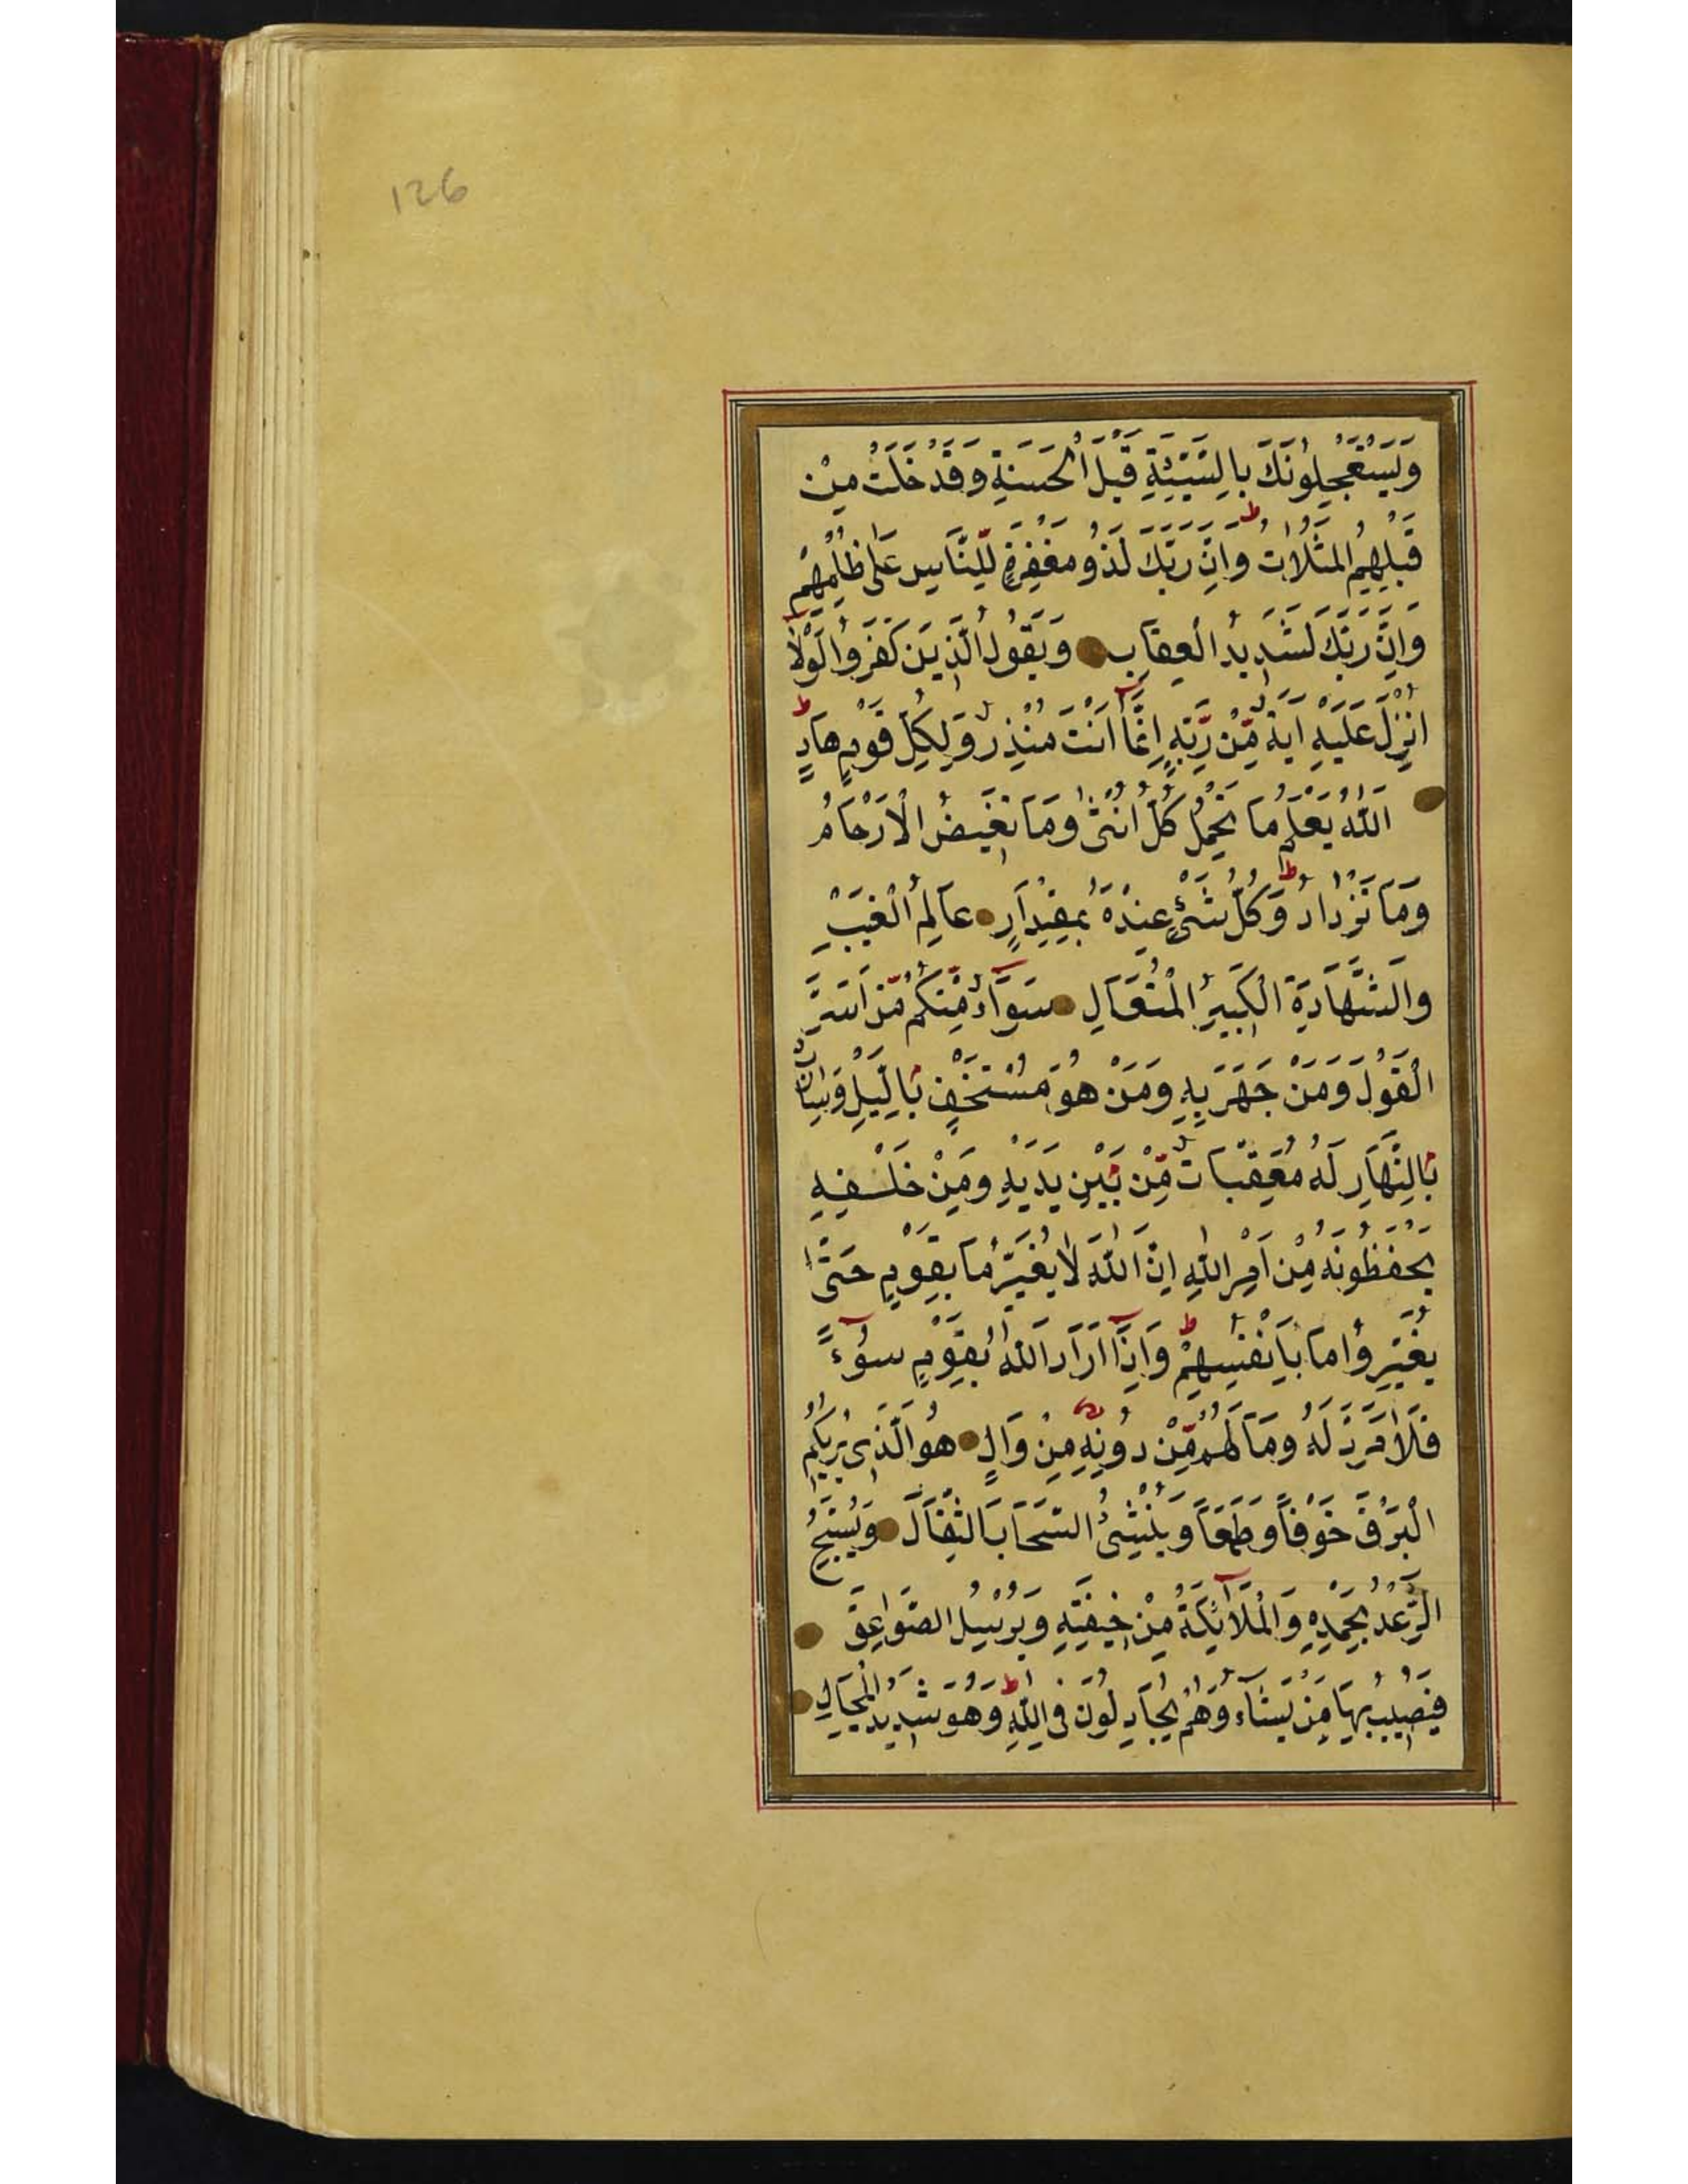 126
وَيَسْتَعْجِلُونَكَ بِالسَّيِّئَةِ قَبْلَ الْحَسَنَةِ وَقَدْ خَلَتْ مِنْ
قَبْلِهِمُ الْمَثُلَاتُ ط وَاِنَّ رَبَّكَ لَذُو مَغْفِرَةٍ لِلنَّاسِ عَلٰى ظُلْمِهِمْ
وَاِنَّ رَبَّكَ لَشَدِيدُ الْعِقَابِ وَيَقُولُ الَّذِينَ كَفَرُوا لَوْلَا
اُنْزِلَ عَلَيْهِ اٰيَةٌ مِّنْ رَّبِّهِ اِنَّمَآ اَنْتَ مُنْذِرٌ وَلِكُلِّ قَوْمٍ هَادٍ ط
اَللّٰهُ يَعْلَمُ مَا تَحْمِلُ كُلُّ اُنْثٰى وَمَا تَغِيضُ الْاَرْحَامُ
وَمَا تَزْدَادُ ط وَكُلُّ شَيْءٍ عِنْدَهُ بِمِقْدَارٍ عَالِمُ الْغَيْبِ
وَالشَّهَادَةِ الْكَبِيرُ الْمُتَعَالِ سَوَآءٌ مِّنْكُمْ مَّنْ اَسَرَّ
الْقَوْلَ وَمَنْ جَهَرَ بِهِ وَمَنْ هُوَ مُسْتَخْفٍ بِالَّيْلِ وَسَارِبٌ
بِالنَّهَارِ لَهُ مُعَقِّبَاتٌ مِّنْ بَيْنِ يَدَيْهِ وَمِنْ خَلْفِهِ
يَحْفَظُونَهُ مِنْ اَمْرِ اللّٰهِ اِنَّ اللّٰهَ لَا يُغَيِّرُ مَا بِقَوْمٍ حَتّٰى
يُغَيِّرُوا مَا بِاَنْفُسِهِمْ ط وَاِذَآ اَرَادَ اللّٰهُ بِقَوْمٍ سُوٓءًا
فَلَا مَرَدَّ لَهُ وَمَا لَهُمْ مِّنْ دُونِهِ مِنْ وَالٍ هُوَ الَّذِي يُرِيكُمُ
الْبَرْقَ خَوْفًا وَطَمَعًا وَيُنْشِئُ السَّحَابَ الثِّقَالَ وَيُسَبِّحُ
الرَّعْدُ بِحَمْدِهِ وَالْمَلَآئِكَةُ مِنْ خِيفَتِهِ وَيُرْسِلُ الصَّوَاعِقَ
فَيُصِيبُ بِهَا مَنْ يَشَآءُ وَهُمْ يُجَادِلُونَ فِي اللّٰهِ ط وَهُوَ شَدِيدُ الْمِحَالِ